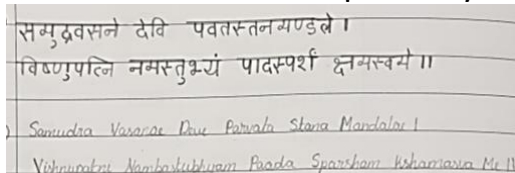 समुद्रवसने देवि पवतस्तनमण्डले ।
विष्णुपत्नि नमस्तुभ्यं पादस्पर्शं क्षमस्वमे ॥
Samudra Vasanae Devi Parvata Stana Mandalae |
Vishnupatni Nambastubhyam Paada Sparsham Kshamasva Me ||